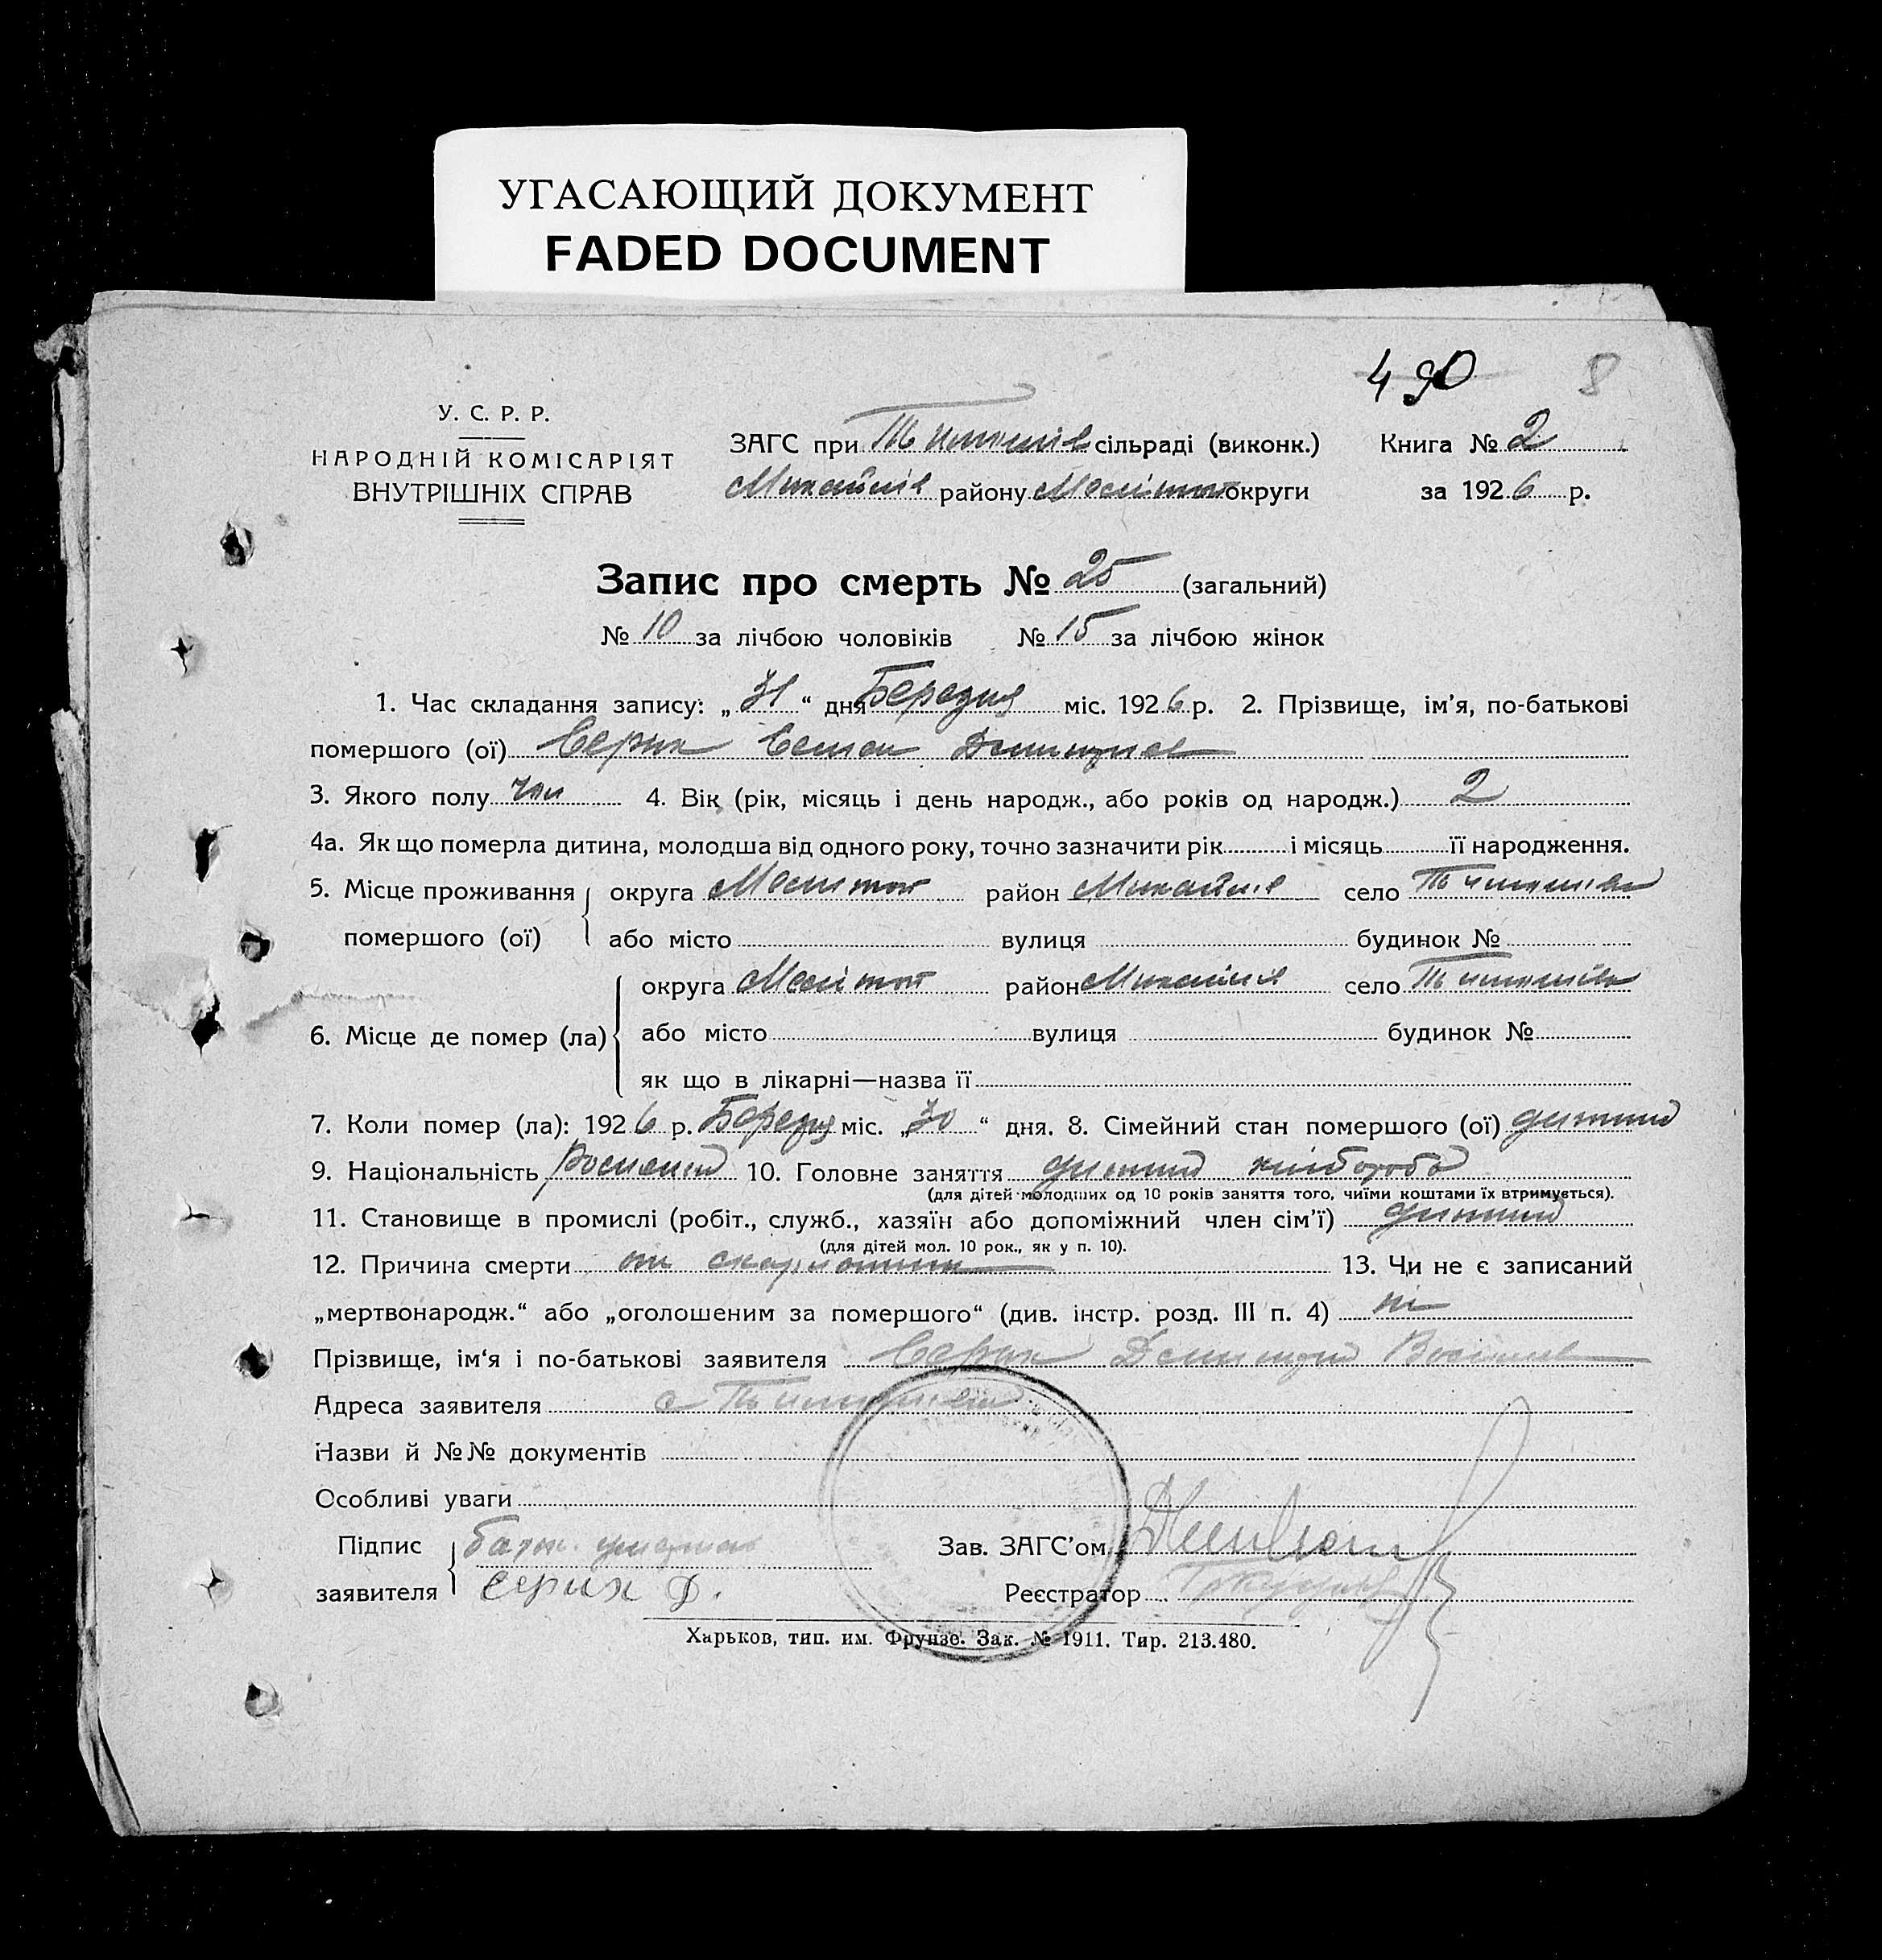 УГАСАЮЩИЙ ДОКУМЕНТ
FADED DOCUMENT
490 8
У. С. Р. Р.
НАРОДНІЙ КОМІСАРІЯТ
ВНУТРІШНІХ СПРАВ
ЗАГС при сільраді (виконк.) Книга № 2
Михайлів району Мелітоп округи за 1926 р.
Запис про смерть № 25 (загальний)
№ 10 за лічбою чоловіків № 15 за лічбою жінок
1. Час складання запису: „31“ дня Березня міс. 1926 р. 2. Прізвище, ім'я, по-батькові
помершого (ої) Серик Семен Дмитриев
3. Якого полу чол 4. Вік (рік, місяць і день народж., або років од народж.) 2
4а. Як що померла дитина, молодша від одного року, точно зазначити рік і місяць її народження.
5. Місце проживання помершого (ої) округа Мелитоп район Михайлів село
або місто вулиця будинок №
6. Місце де помер (ла) округа Мелітоп район Михайлів село
або місто вулиця будинок №
як що в лікарні—назва її
7. Коли помер (ла): 1926 р. Березня міс. „30“ дня. 8. Сімейний стан помершого (ої) дитина
9. Національність 10. Головне заняття дитина хлібороба
(для дітей молодших од 10 років заняття того, чиїми коштами їх втримується).
11. Становище в промислі (робіт., служб., хазяїн або допоміжний член сім'ї) дитина
(для дітей мол. 10 рок., як у п. 10).
12. Причина смерти от скарлатини 13. Чи не є записаний
„мертвонародж.“ або „оголошеним за помершого“ (див. інстр. розд. III п. 4) ні
Прізвище, ім'я і по-батькові заявителя Серик Дмитрий
Адреса заявителя с
Назви й №№ документів
Особливі уваги
Підпис заявителя
Серик Д.
Зав. ЗАГС'ом
Реєстратор
Харьков, тип. им. Фрунзе. Зак. № 1911. Тир. 213.480.